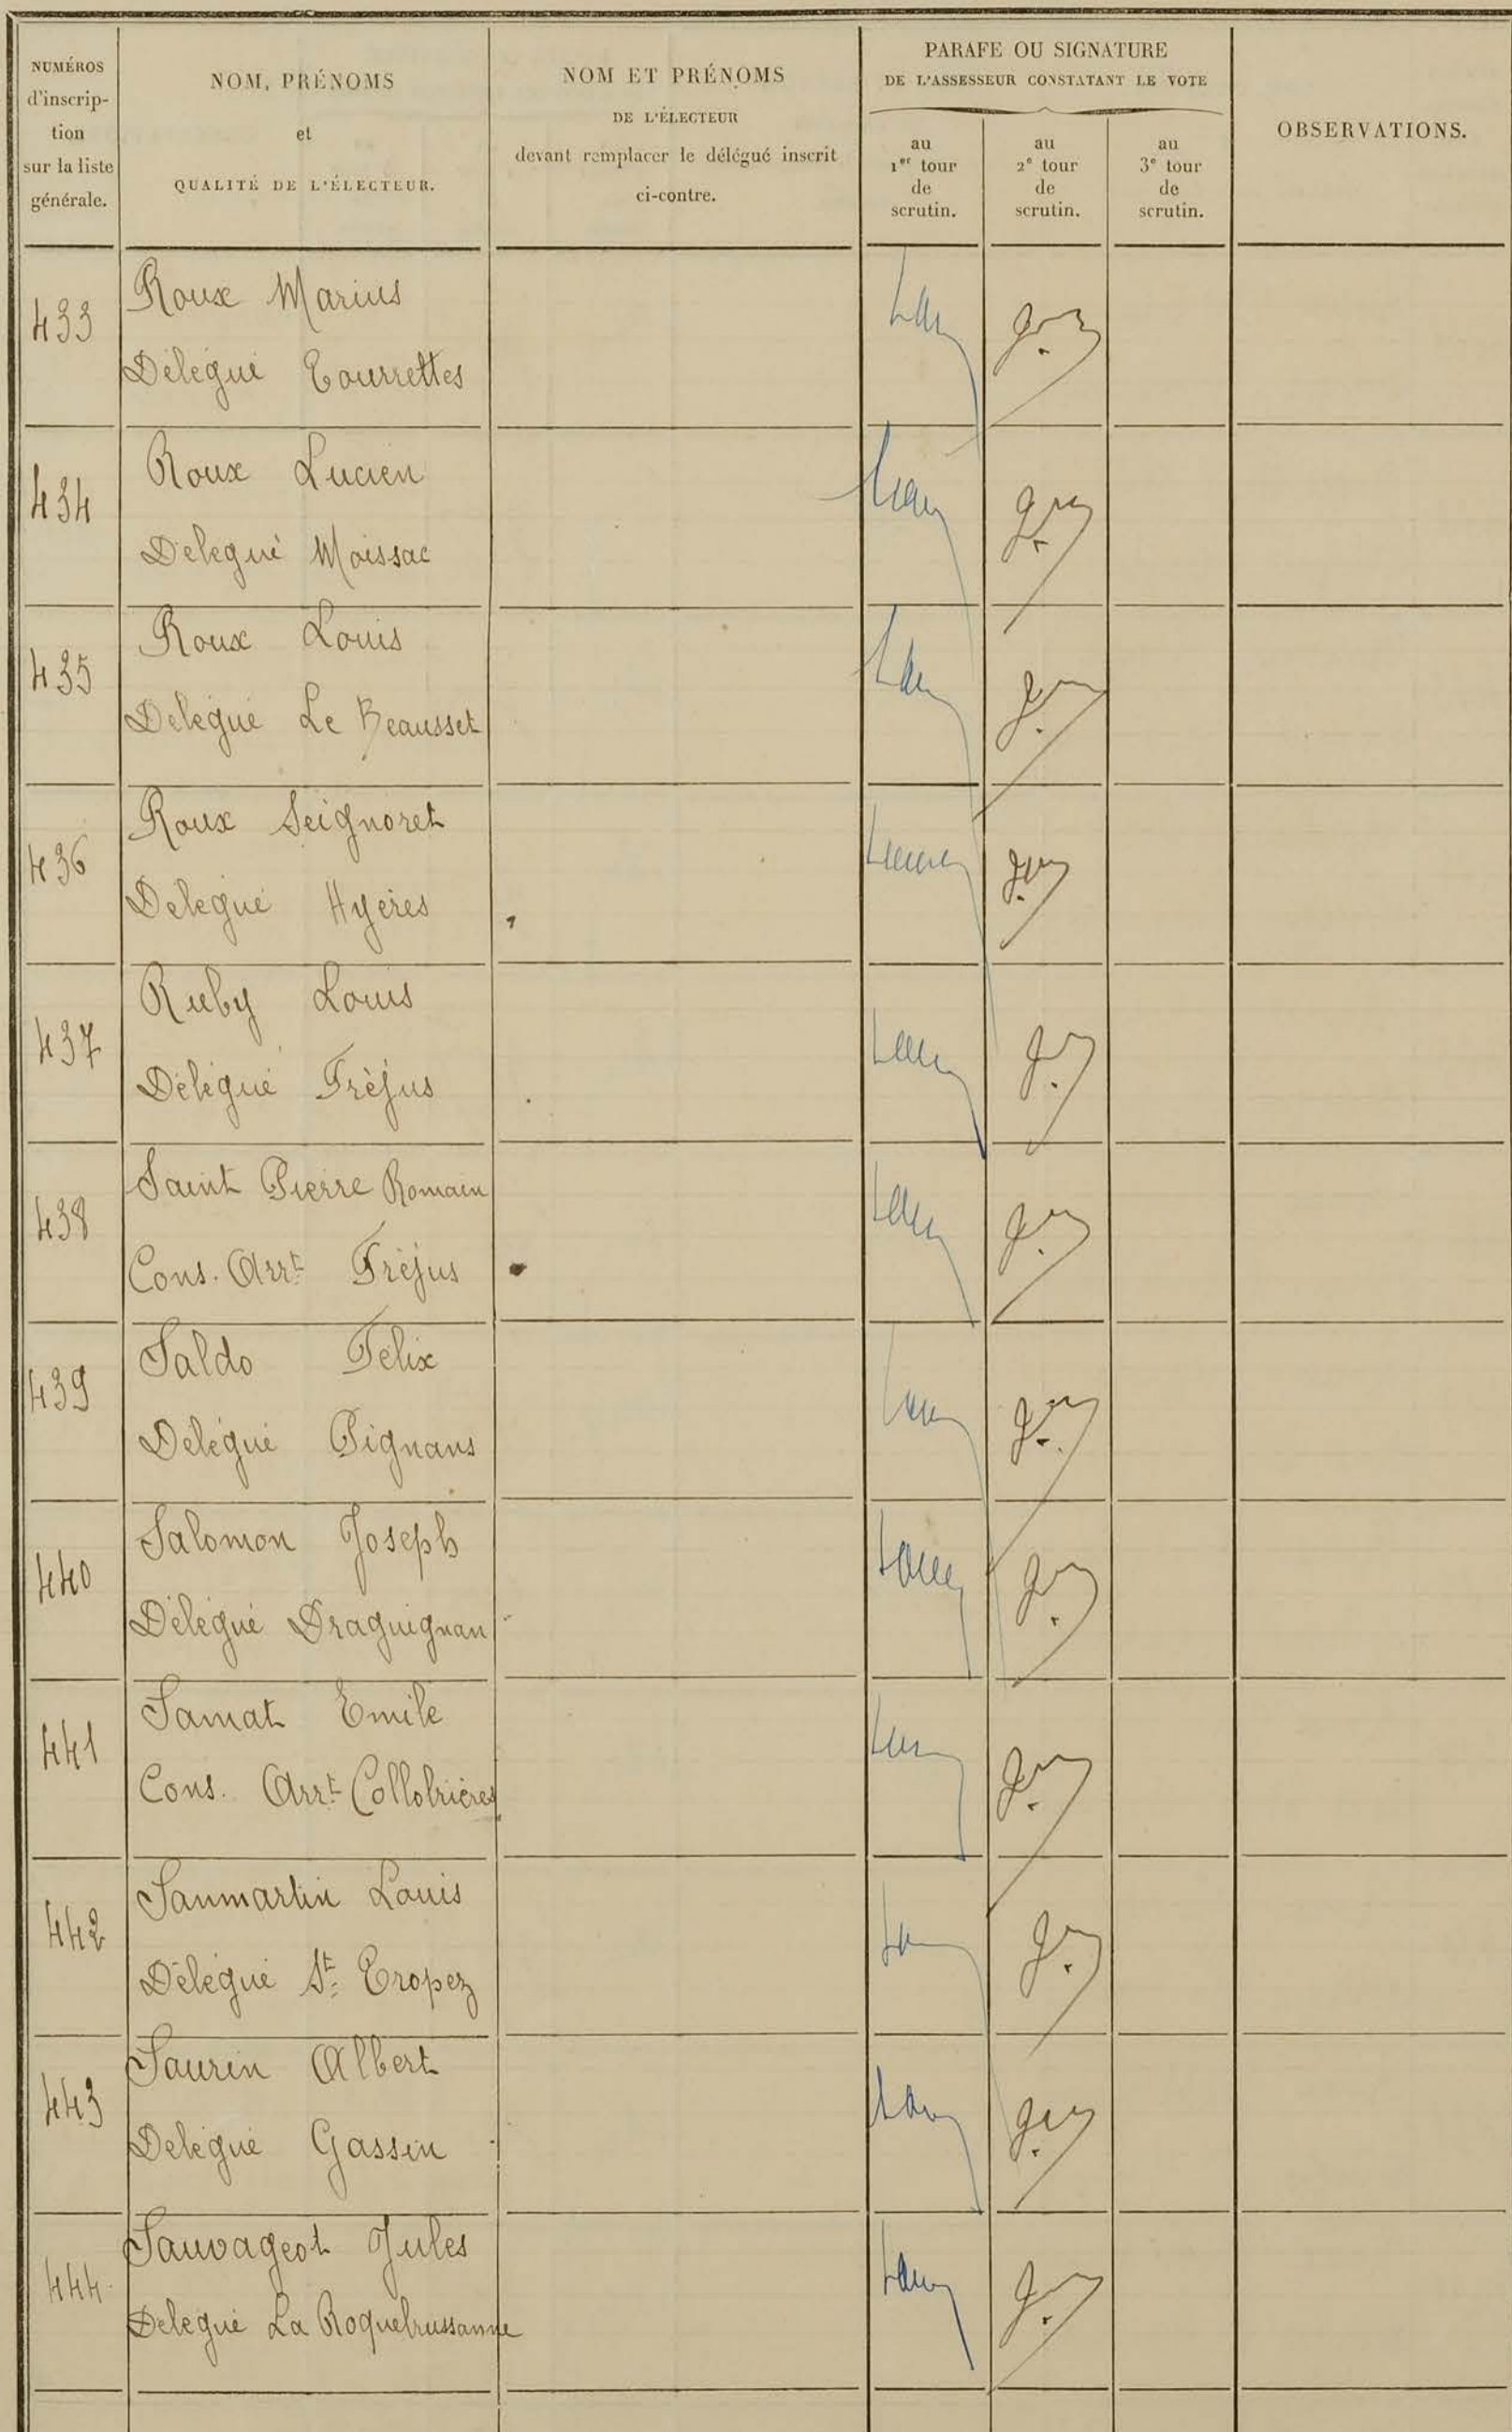 NUMÉROS
d'inscrip-
tion
sur la liste
générale.
NOM, PRÉNOMS
et
QUALITÉ DE L'ÉLECTEUR.
NOM ET PRÉNOMS
DE L'ÉLECTEUR
devant remplacer le délégué inscrit
ci-contre.
PARAFE OU SIGNATURE
DE L'ASSESSEUR CONSTATANT LE VOTE
au
1er tour
de
scrutin.
au
2e tour
de
scrutin.
au
3e tour
de
scrutin.
OBSERVATIONS.
433
Roux Marius
Délégué Tourrettes
434
Roux Lucien
Délégué Moissac
435
Roux Louis
Délégué Le Beausset
436
Roux Seignoret
Délégué Hyères
437
Ruby Louis
Délégué Fréjus
438
Saint Pierre Romain
Cons. Arrt Fréjus
439
Saldo Félix
Délégué Pignans
440
Salomon Joseph
Délégué Draguignan
441
Samat Emile
Cons. Arrt Collobrières
442
Sanmartin Louis
Délégué St Tropez
443
Saurin Albert
Délégué Gassin
444
Sauvageot Jules
Délégué La Roquebrussanne